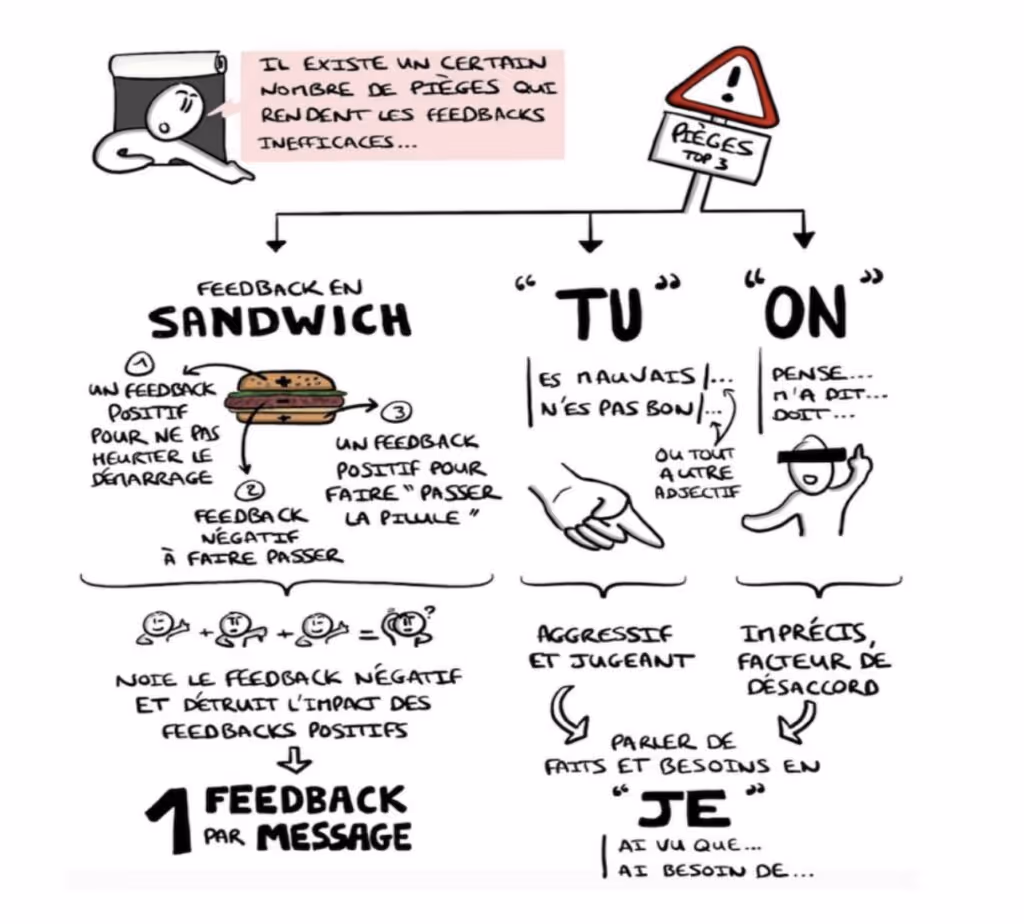 IL EXISTE UN CERTAIN
NOMBRE DE PIÈGES QUI
RENDENT LES FEEDBACKS
INEFFICACES...
!
PIÈGES
TOP 3
FEEDBACK EN
SANDWICH
1
UN FEEDBACK
POSITIF
POUR NE PAS
HEURTER LE
DÉMARRAGE
+
-
+
2
FEEDBACK
NÉGATIF
À FAIRE PASSER
3
UN FEEDBACK
POSITIF POUR
FAIRE "PASSER
LA PILULE"
+ + = ?
NOIE LE FEEDBACK NÉGATIF
ET DÉTRUIT L'IMPACT DES
FEEDBACKS POSITIFS
1 FEEDBACK
PAR MESSAGE
"TU"
ES MAUVAIS/...
N'ES PAS BON/...
OU TOUT
AUTRE
ADJECTIF
AGGRESSIF
ET JUGEANT
"ON"
PENSE...
M'A DIT...
DOIT...
IMPRÉCIS,
FACTEUR DE
DÉSACCORD
PARLER DE
FAITS ET BESOINS EN
"JE"
AI VU QUE...
AI BESOIN DE...